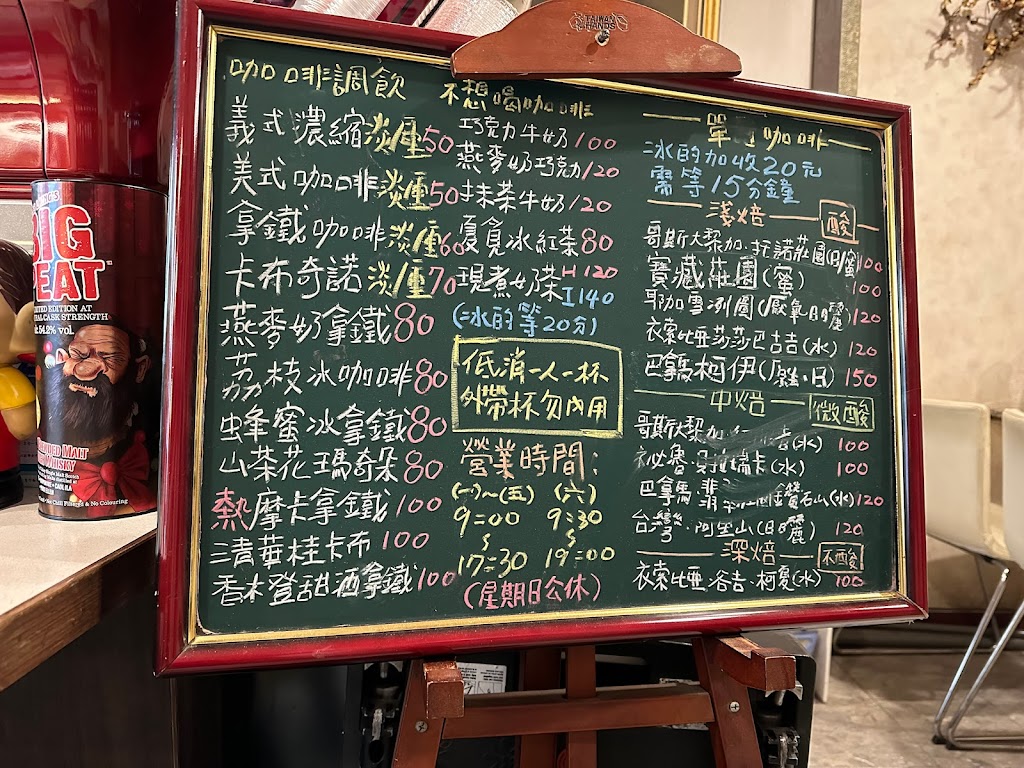 TAIWAN HANDS
咖啡調飲
義式濃縮淡/重50
美式咖啡淡/重50
拿鐵咖啡淡/重60
卡布奇諾淡/重70
燕麥奶拿鐵80
荔枝冰咖啡80
蜂蜜冰拿鐵80
山茶花瑪奇朵80
熱摩卡拿鐵100
三清華桂卡布100
香木登甜酒拿鐵100
不想喝咖啡
巧克力牛奶100
燕麥奶巧克力120
抹茶牛奶120
夏覓冰紅茶80
現煮奶茶H 120
I 140
(冰的等20分)
低消一人一杯
外帶杯勿內用
營業時間:
(一)~(五) (六)
9:00 9:30
17:30 19:00
(星期日公休)
單品咖啡
冰的加收20元
需等15分鐘
淺焙 酸
哥斯大黎加.托諾莊園(日/蜜)100
寶藏莊園(蜜) 100
耶加雪冽 (厭氧日曬)120
衣索比亞莎莎巴吉吉(水) 120
巴拿馬柯伊 150
中焙 微酸
哥斯大黎加 (水) 100
祕魯 瑞卡(水) 100
巴拿馬 翡 鑽石山(水)120
台灣.阿里山(日曬) 120
深焙 不酸
衣索比亞.谷吉.柯憂(水) 100
BIG
PEAT
LIMITED EDITION AT
CASK STRENGTH
54.2% vol.
MALT
WHISKY